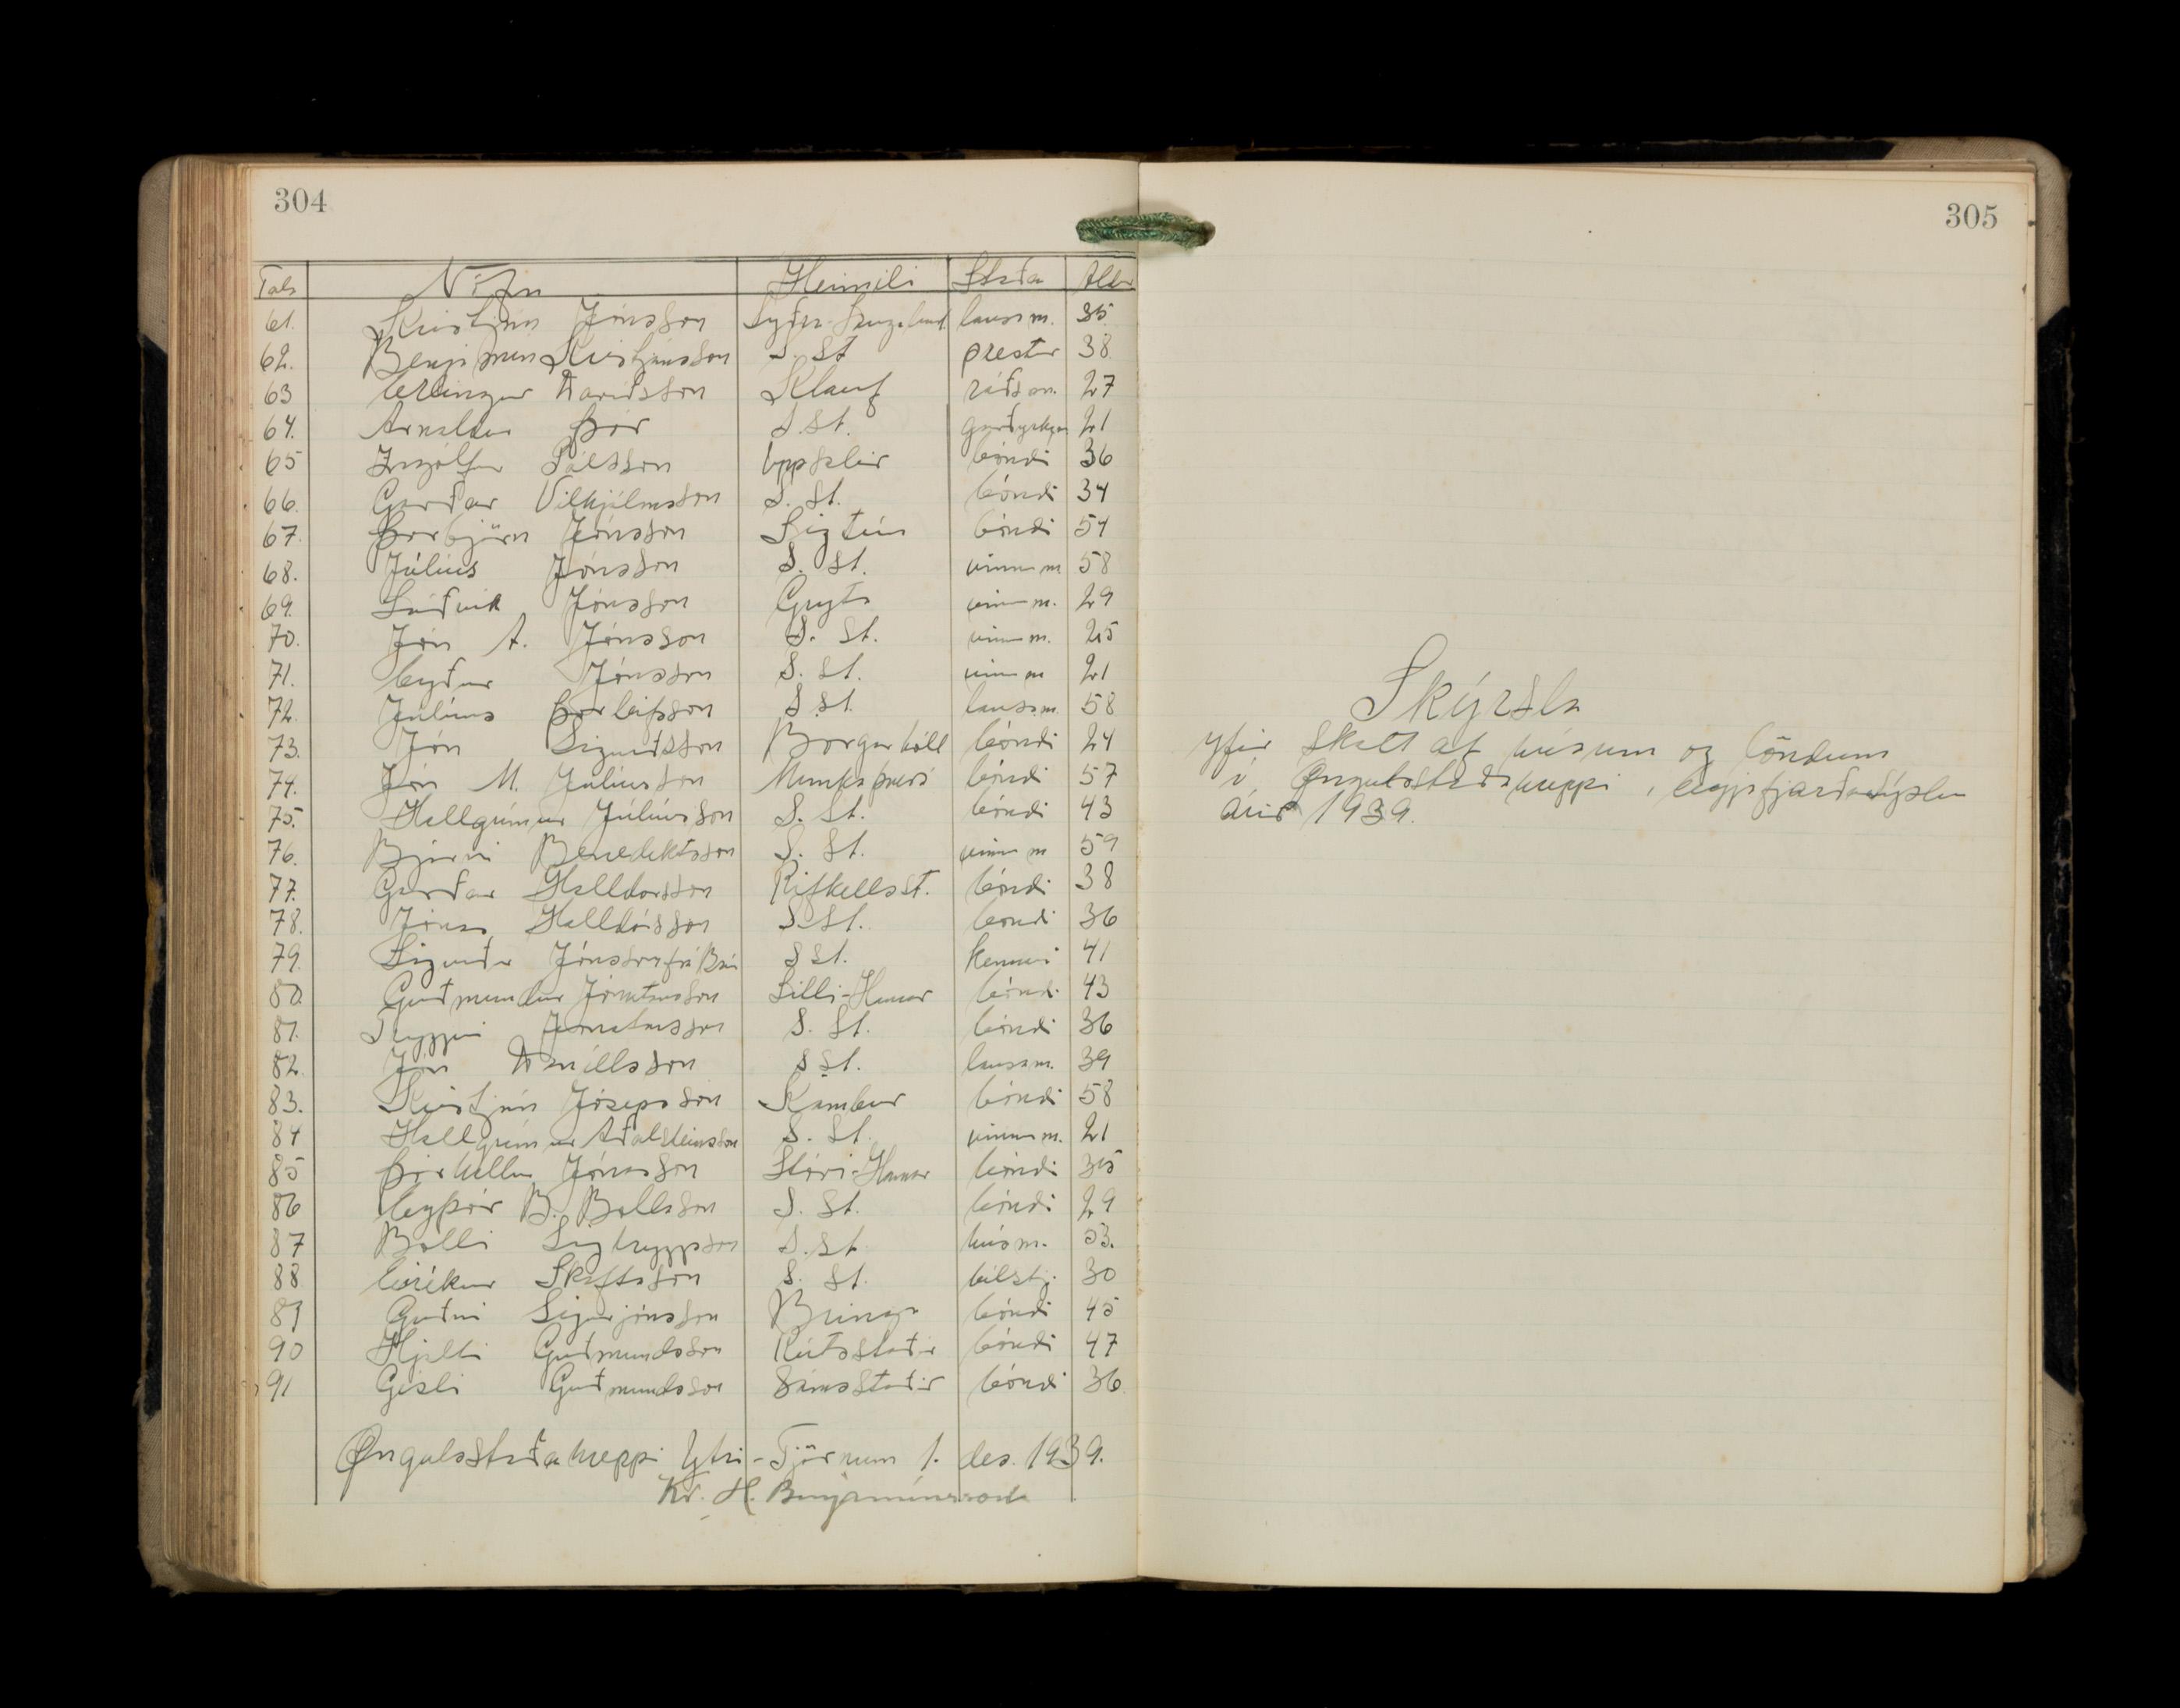 304
Tala Nöfn Heimili Staða Aldur
61. Kristján Jónsson Syðra-Laugaland lausam. 35
62. Benjamín Kristjánsson S. St prestur 38
63 Erlingur Davíðsson Klauf ráðsm. 27
64. Arnaldur Þór S. St. garðyrkjum 21
65 Ingólfur Pálsson Uppsalir bóndi 36
66. Garðar Vilhjálmsson S. St. bóndi 34
67. Þorbjörn Jónsson Sigtún bóndi 54
68. Júlíus Jónsson S. St. vinnum 58
69. Lúðvík Jónsson Grýta vinnum. 29
70. Jón A. Jónsson S. St. vinnum. 25
71. Eyður Jónsson S. St. vinnum 21
72. Júlíus Þorleifsson S St. lausam. 58
73. Jón Sigurðsson Borgarhóll bóndi 24
74. Jón M. Júlíusson Munkaþverá bóndi 57
75. Hallgrímur Júlíusson S. St. bóndi 43
76. Bjarni Benediktsson S. St. vinnum 59
77. Garðar Halldorsson Rifkellsst. bóndi 38
78. Jónas Halldórsson S. St. bondi 36
79. Sigurður Jónsson frá Brún S St. kennari 41
80. Guðmundur Jónatansson Litli-Hamar bóndi 43
81. Tryggvi Jónatansson S. St. bóndi 36
82. Jón Daníelsson S St. lausam. 39
83. Kristján Jósepsson Kambur bóndi 58
84 Hallgrímur Aðalsteinsson S. St. vinnum. 21
85 Þórhallur Jónasson Stóri-Hamar bóndi 35
86 Eyþór B. Bollason S. St. bóndi 29
87 Bolli Sigtryggsson S. St húsm. 53.
88 Eiríkur Skaftason S. St. bílstj. 30
89 Guðni Sigurjónsson Bringa bóndi 45
90 Hjalti Guðmundsson Rútsstaðir bóndi 47
91 Gísli Guðmundsson Sámsstaðir bóndi 36
Öngulsstaðahreppi Ytri-Tjörnum 1. des. 1939.
Kr. H. Benjamínsson
305
Skýrsla
yfir skatt af húsum og löndum
í Öngulsstaðahreppi, Eyjafjarðarsýslu
árið 1939.